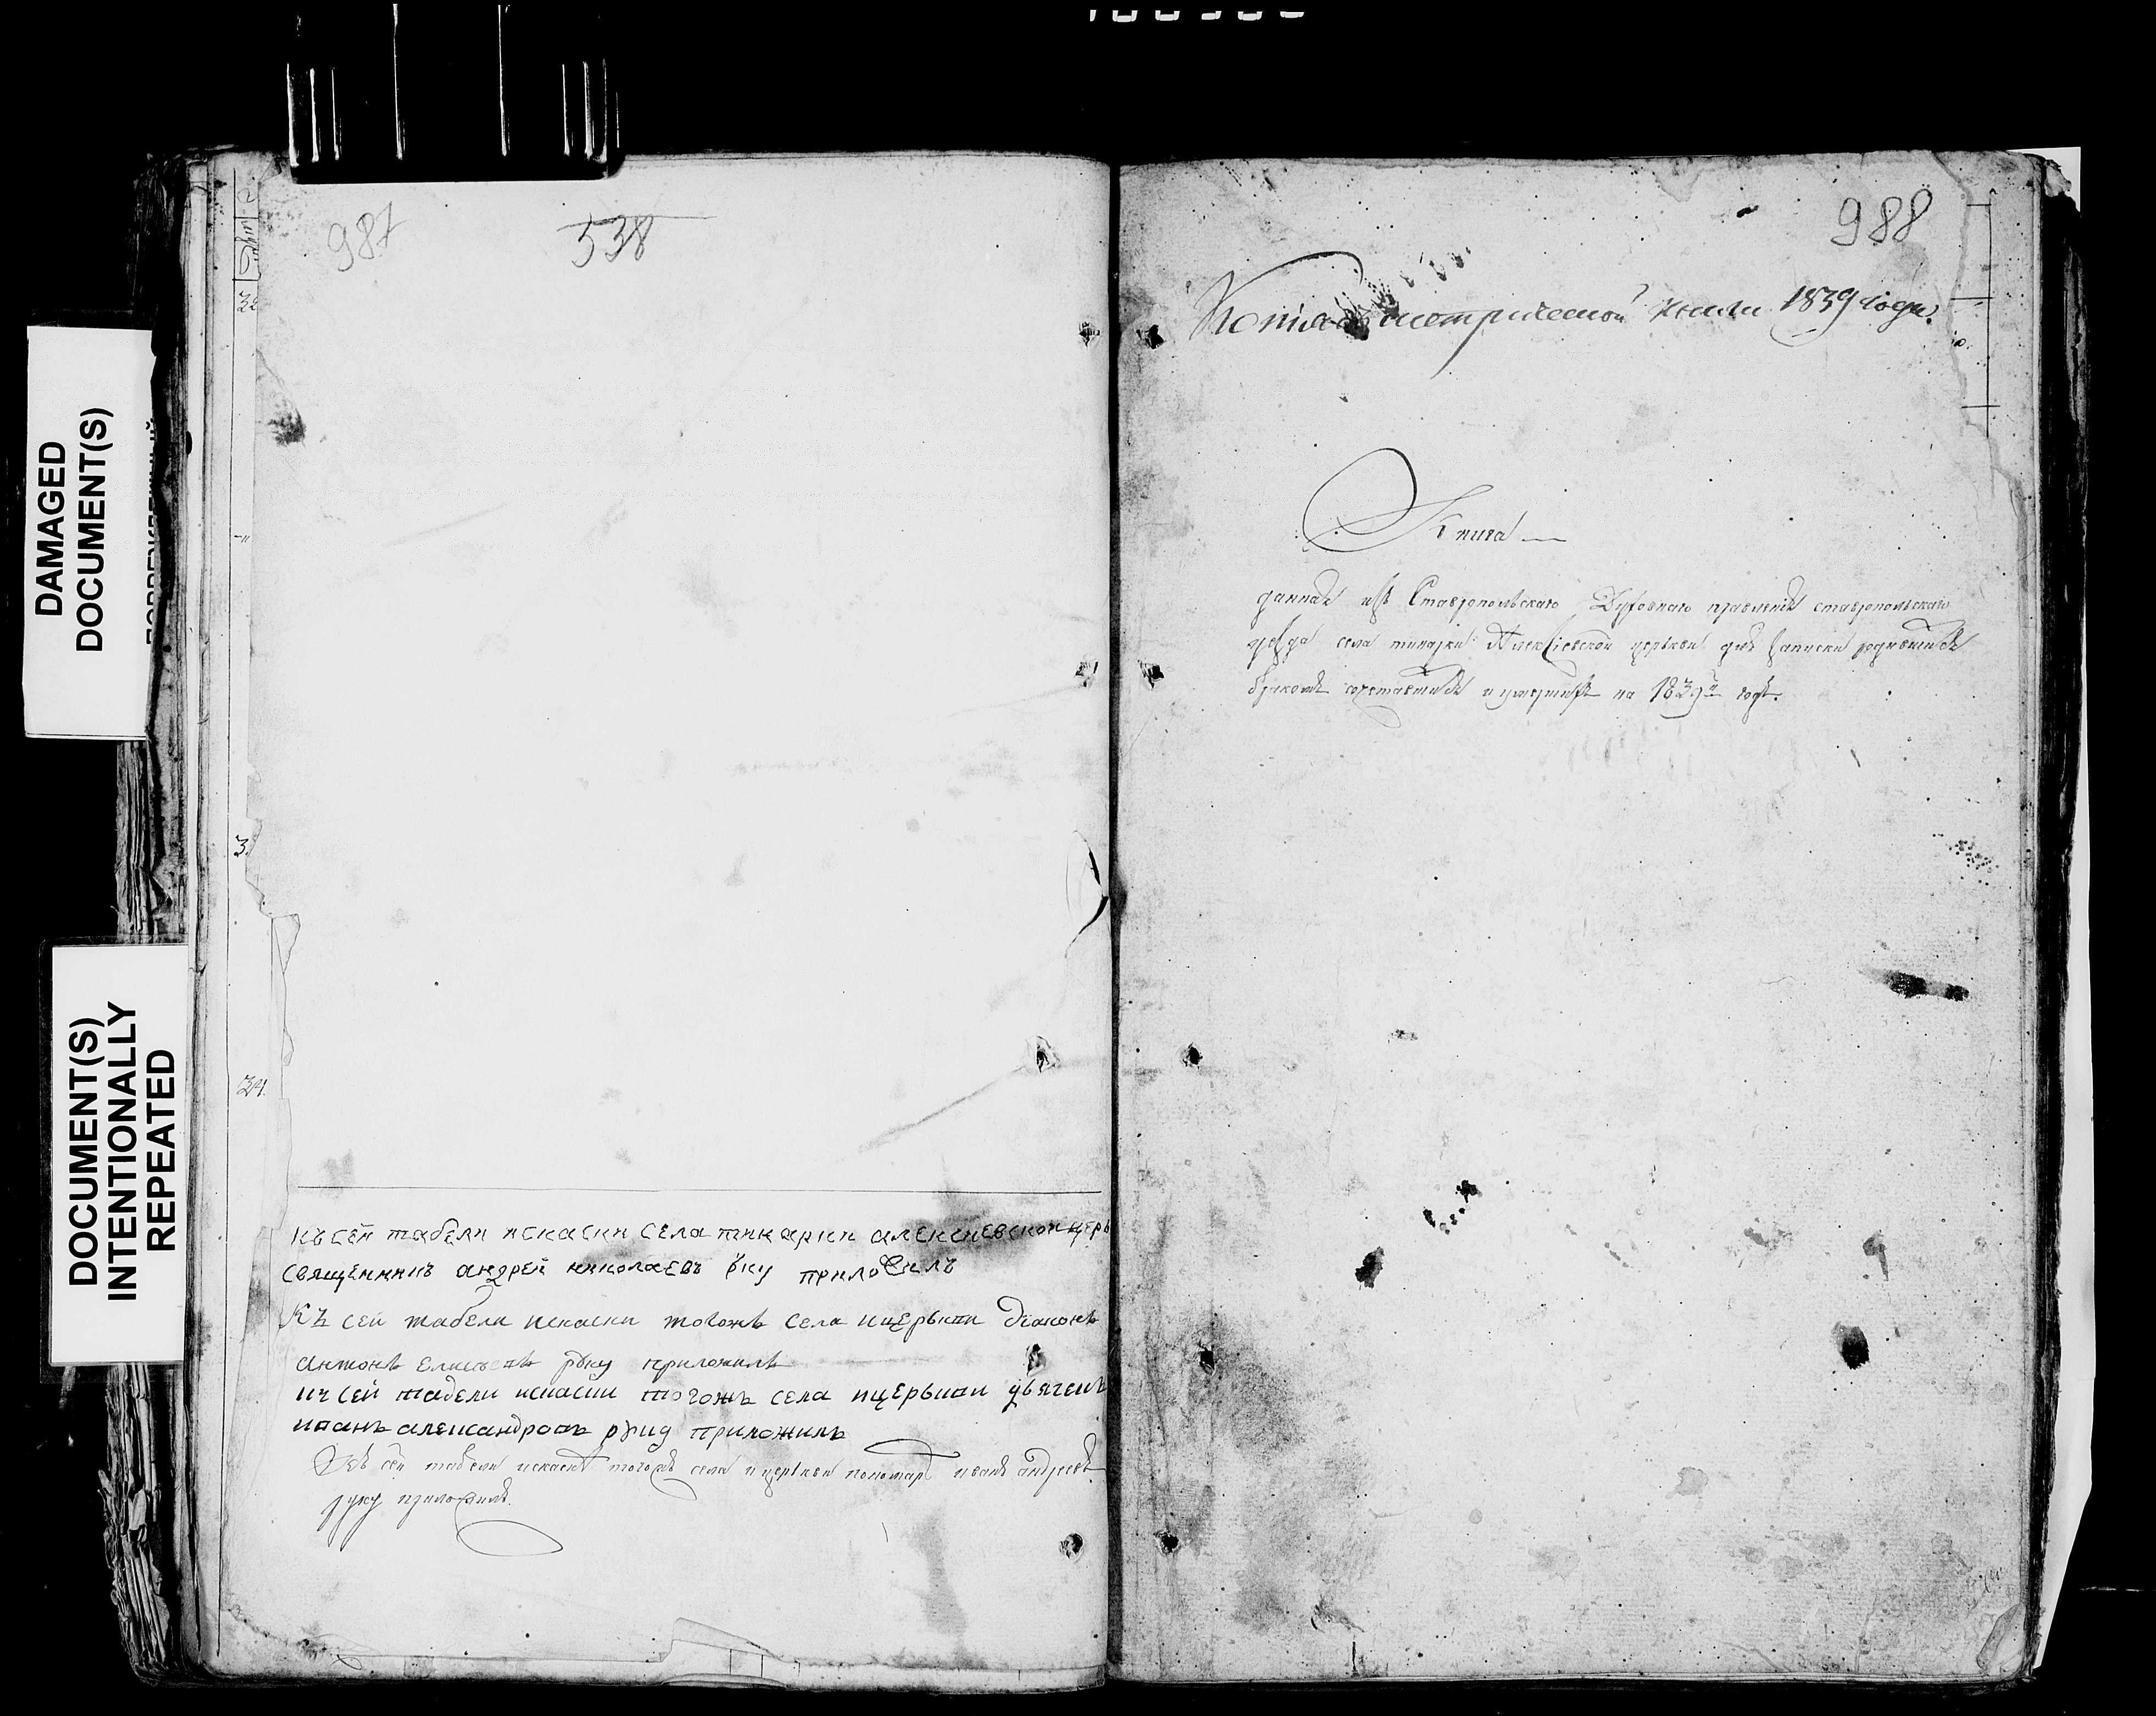 DAMAGED
DOCUMENT(S)
DOCUMENT(S)
INTENTIONALLY
REPEATED
987
538
къ сей табели искаски села тинарки алексиевской церь
священникъ андрей николаевъ руку приложилъ
Къ сей табели искаски тогожъ села ицеркви діаконъ
антонъ руку приложилъ
къ сей табели искаски тогожъ села ицеркви
иванъ александровъ руку приложилъ
Къ сей табели искаски тогожъ села ицеркви пономарь иванъ андреевъ
руку приложилъ.
988
Копія метрической книги 1839 года.
Книга
данная изъ Ставропольскаго Духовнаго правленія ставропольскаго
уезда села Алексіевской церькви для записки родившихся
бракомъ сочетавшихся и умершихъ на 1839й годъ.